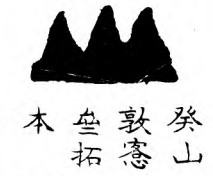 癸山
敦愙
亝拓
本